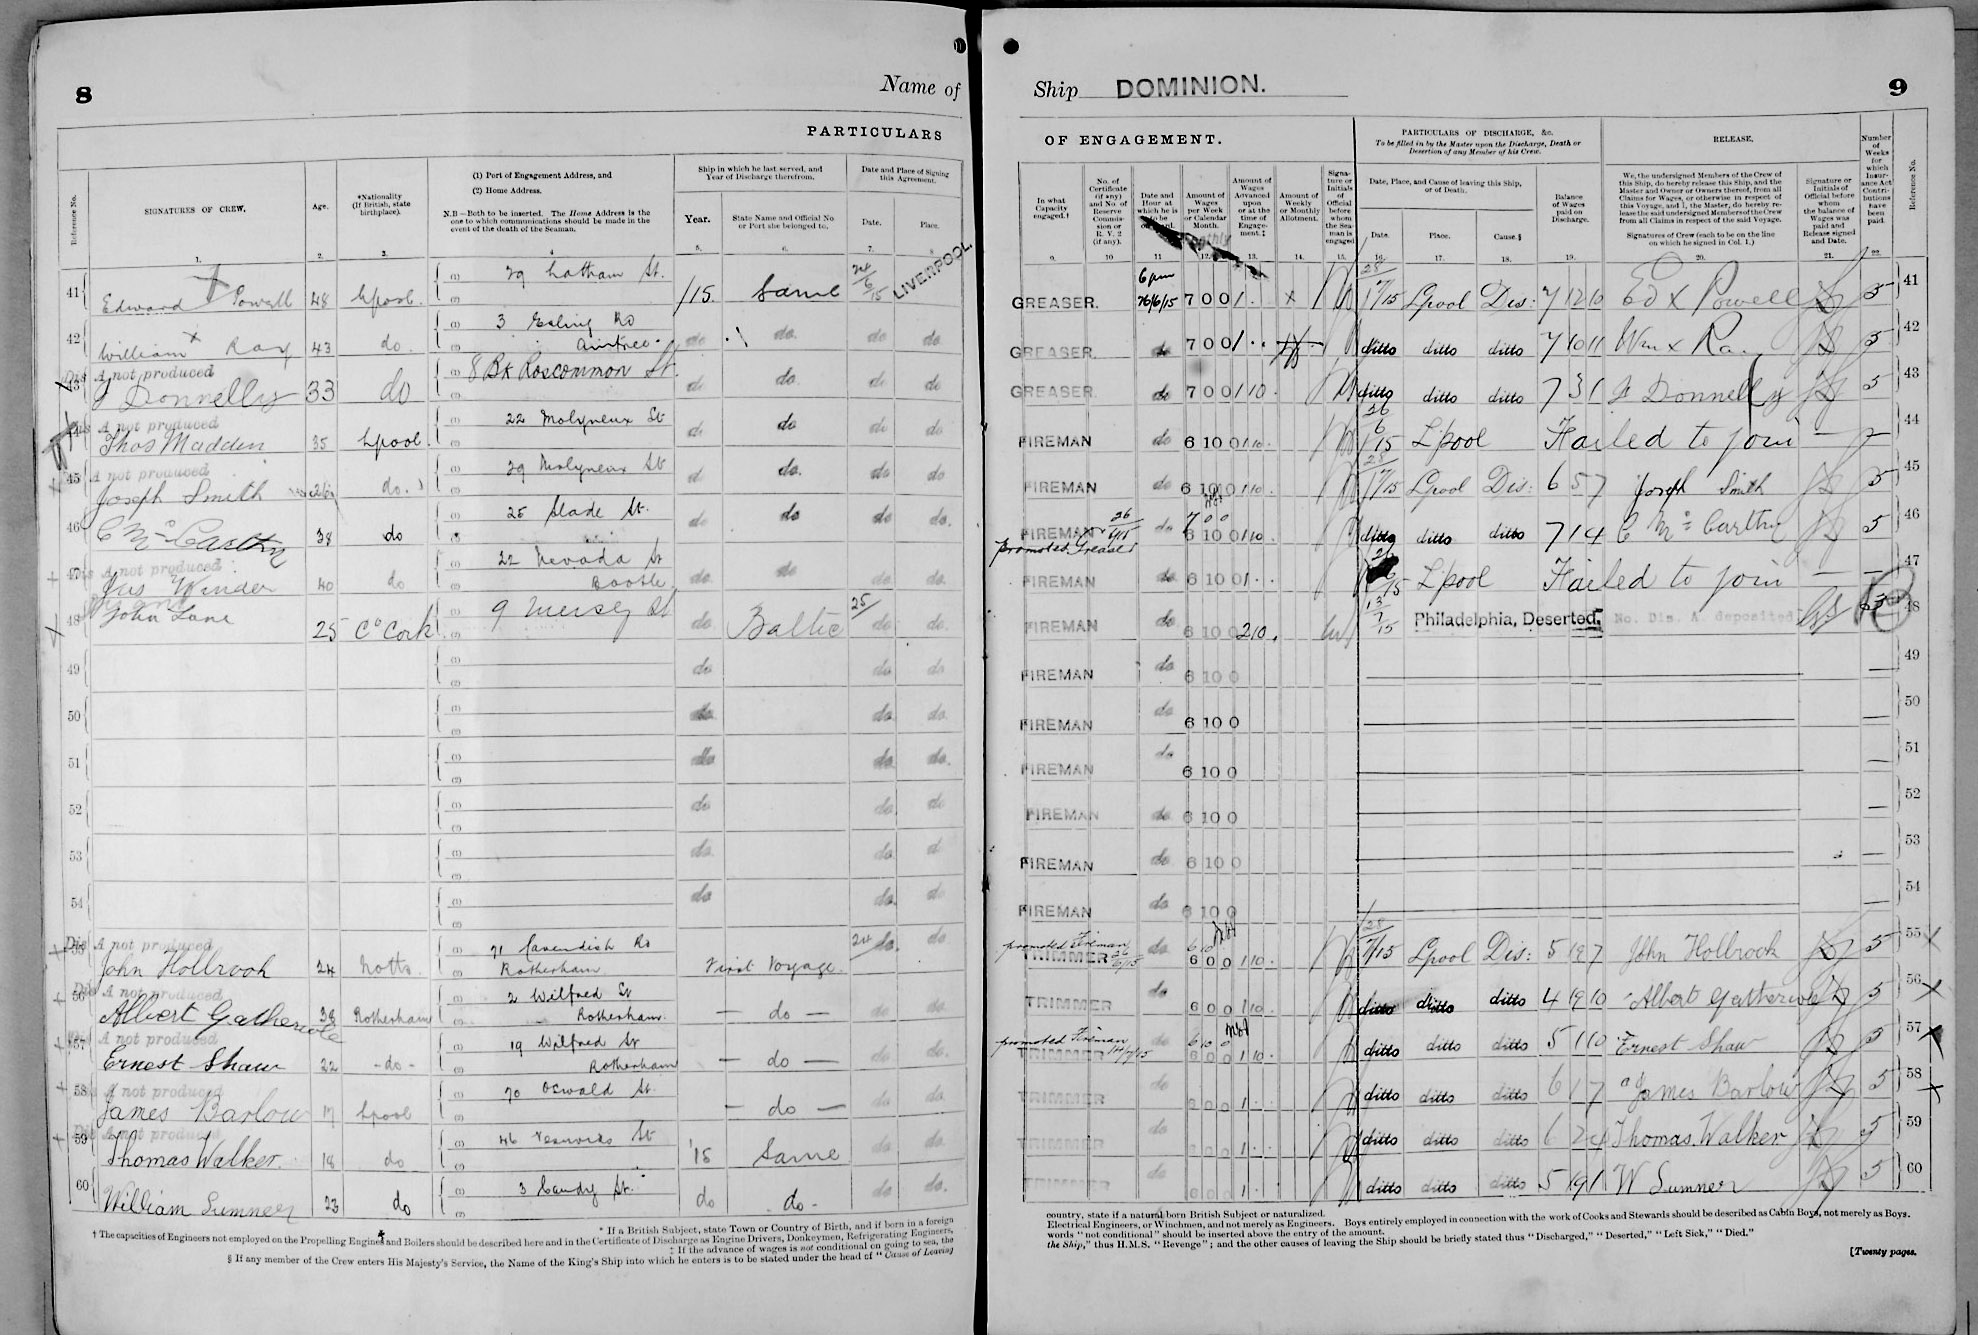 8
Name of
PARTICULARS
Reference No.
SIGNATURES OF CREW.
Age.
*Nationality (If British, state birthplace).
(1) Port of Engagement Address, and
(2) Home Address.
N.B.—Both to be inserted. The Home Address is the one to which communications should be made in the event of the death of the Seaman.
Ship in which he last served, and Year of Discharge therefrom.
Year.
State Name and Official No. or Port she belonged to,
Date and Place of Signing this Agreement.
Date.
Place.
1. 2. 3. 4 5. 6. 7. 8
41 Edward X Powell 48 Lpool. 29 Latham St. /15. Same 24/6/15 LIVERPOOL
42 William X Ray 43 do 3 Ealing Rd Aintree do do. do do.
Dis A not produced
43 J Donnelly 33 do 8 Bk Roscommon St. do do. do do
Dis A not produced
44 Thos Madden 35 Lpool. 22 Molyneux St do do do do
A not produced
45 Joseph Smith 26 do. 29 Molyneux St do do. do. do
46 C McCarthy 38 do 25 Slade St. do do do do.
Dis A not produced
47 Jas Winder 40 do 22 Nevada St Bootle do. do do. do.
48 John Lane 25 Co Cork 9 Mersey St do Baltic 25/ do. do.
49 do do. do.
50 do. do. do.
51 do do. do.
52 do do. do
53 do. do. d
54 do do. do
Dis A not produced
55 John Holbrook 24 Notts. 71 Cavendish Rd Rotherham First Voyage. 24 do. do
Dis A not produced
56 Albert Gathercole 38 Rotherham 2 Wilfred St Rotherham. — do — do. do
A not produced
57 Ernest Shaw 22 - do - 19 Wilfred St Rotherham — do — do. do
A not produced
58 James Barlow 17 Lpool 70 Oswald St. — do — do. do.
Dis A not produced
59 Thomas Walker. 18 do 46 St '15 Same do. do.
60 William Sumner 23 do 3 St. do do - do do.
* If a British Subject, state Town or Country of Birth, and if born in a foreign
† The capacities of Engineers not employed on the Propelling Engines and Boilers should be described here and in the Certificate of Discharge as Engine Drivers, Donkeymen, Refrigerating Engineers,
‡ If the advance of wages is not conditional on going to sea, the
§ If any member of the Crew enters His Majesty's Service, the Name of the King's Ship into which he enters is to be stated under the head of "Cause of Leaving
Ship DOMINION.
9
OF ENGAGEMENT.
PARTICULARS OF DISCHARGE, &c.
To be filled in by the Master upon the Discharge, Death or Desertion of any Member of his Crew.
RELEASE.
Number of Weeks for which Insurance Act Contributions have been paid.
Reference No.
In what Capacity engaged.†
No. of Certificate (if any) and No. of Reserve Commission or R. V. 2 (if any).
Date and Hour at which he is to be on board.
Amount of Wages per Week or Calendar Month.
Monthly
Amount of Wages Advanced upon or at the time of Engagement.‡
Amount of Weekly or Monthly Allotment.
Signature or Initials of Official before whom the Seaman is engaged
Date, Place, and Cause of leaving this Ship, or of Death.
Date.
Place.
Cause.§
Balance of Wages paid on Discharge.
We, the undersigned Members of the Crew of this Ship, do hereby release this Ship, and the Master and Owner or Owners thereof, from all Claims for Wages, or otherwise in respect of this Voyage, and I, the Master, do hereby release the said undersigned Members of the Crew from all Claims in respect of the said Voyage.
Signatures of Crew (each to be on the line on which he signed in Col. 1.)
Signature or Initials of Official before whom the balance of Wages was paid and Release signed and Date.
9. 10 11 12. 13. 14. 15. 16. 17. 18. 19. 20. 21. 22.
GREASER. 6 pm 26/6/15 7 0 0 1 . X 28/7/15 Lpool Dis: 7 12 10 Ed X Powell 5 41
GREASER. do 7 0 0 1 . . ditto ditto ditto 7 10 11 Wm x Ra 5 42
GREASER. do 7 0 0 1 10 . ditto ditto ditto 7 3 1 J Donnelly 5 43
FIREMAN do 6 10 0 1 10 . 26/6/15 L'pool Failed to join — 44
FIREMAN do 6 10 0 1 10 . 28/7/15 Lpool Dis: 6 5 7 Joseph Smith 5 45
FIREMAN 26/6/15 do 7 0 0 6 10 0 1 10 . ditto ditto ditto 7 1 4 C McCarthy 5 46
promoted Greaser
FIREMAN do. 6 10 0 1 . . 26/6/15 L'pool Failed to join — — 47
FIREMAN do 6 10 0 2 10 . 13/7/15 Philadelphia, Deserted. No. Dis. A. deposited 3 48
FIREMAN do 6 10 0 — 49
FIREMAN do 6 10 0 — 50
FIREMAN do 6 10 0 — 51
FIREMAN do. 6 10 0 — 52
FIREMAN do 6 10 0 — 53
FIREMAN do 6 10 0 54
promoted Fireman 26/6/15
TRIMMER do 6 10 6 0 0 1 10 . 28/7/15 Lpool Dis: 5 19 7 John Holbrook 5 55 X
TRIMMER do 6 0 0 1 10 . ditto ditto ditto 4 19 10 Albert Gathercole 5 56 X
promoted Fireman
TRIMMER 14/7/15 do 6 10 0 6 0 0 1 10 . ditto ditto ditto 5 1 10 Ernest Shaw 5 57 X
TRIMMER do 6 0 0 1 . . ditto ditto ditto 6 1 7 James Barlow 5 58 X
TRIMMER do 6 0 0 1 . ditto ditto ditto 6 2 4 Thomas Walker 5 59
TRIMMER do 6 0 0 1 . ditto ditto ditto 5 19 1 W Sumner 5 60
country, state if a natural born British Subject or naturalized.
Electrical Engineers, or Winchmen, and not merely as Engineers. Boys entirely employed in connection with the work of Cooks and Stewards should be described as Cabin Boys, not merely as Boys.
words "not conditional" should be inserted above the entry of the amount.
the Ship," thus H.M.S. "Revenge"; and the other causes of leaving the Ship should be briefly stated thus "Discharged," "Deserted," "Left Sick," "Died."
[Twenty pages.